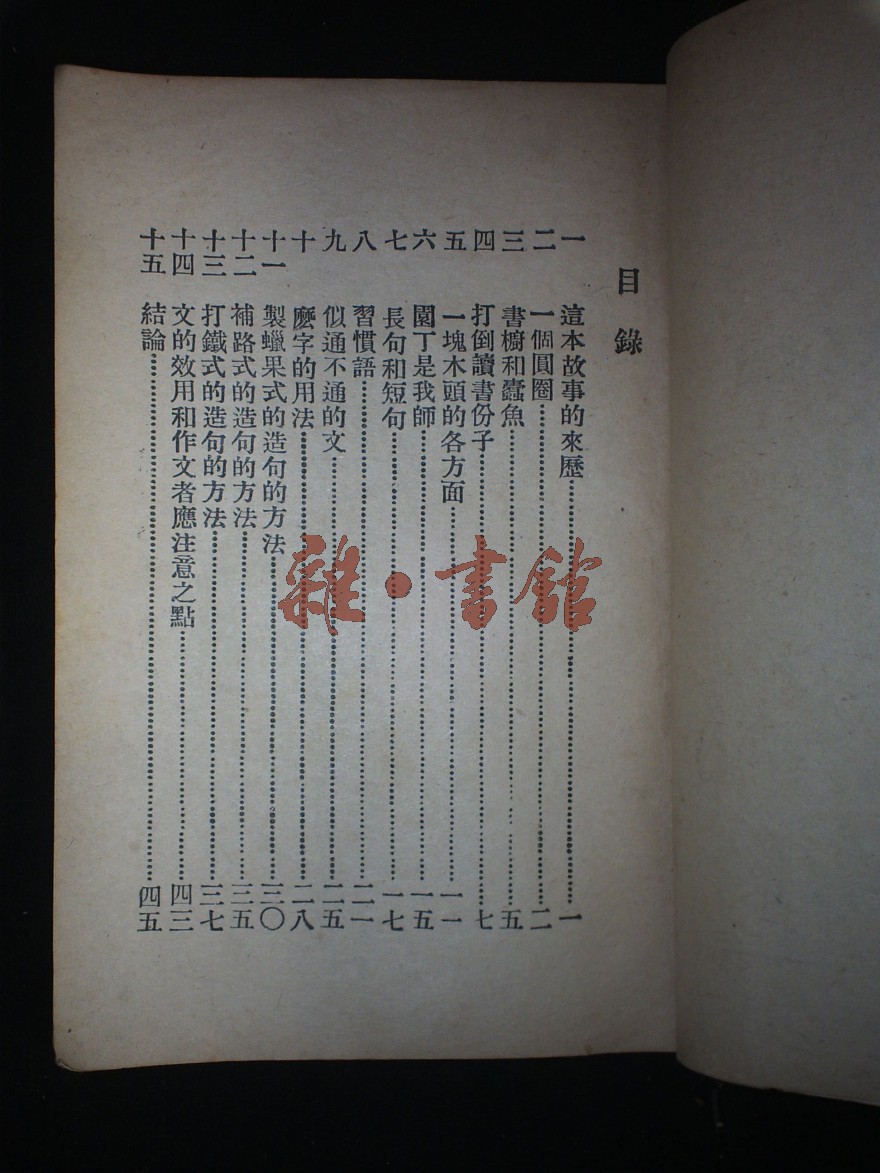 目錄
一 這本故事的來歷 一
二 一個圓圈 二
三 書櫥和蠹魚 五
四 打倒讀書份子 七
五 一塊木頭的各方面 一一
六 園丁是我師 一五
七 長句和短句 一七
八 習慣語 二一
九 似通不通的文 二五
十 麼字的用法 二八
十一 製蠟果式的造句的方法 三〇
十二 補路式的造句的方法 三五
十三 打鐵式的造句的方法 三七
十四 文的效用和作文者應注意之點 四三
十五 結論 四五
雜·書館